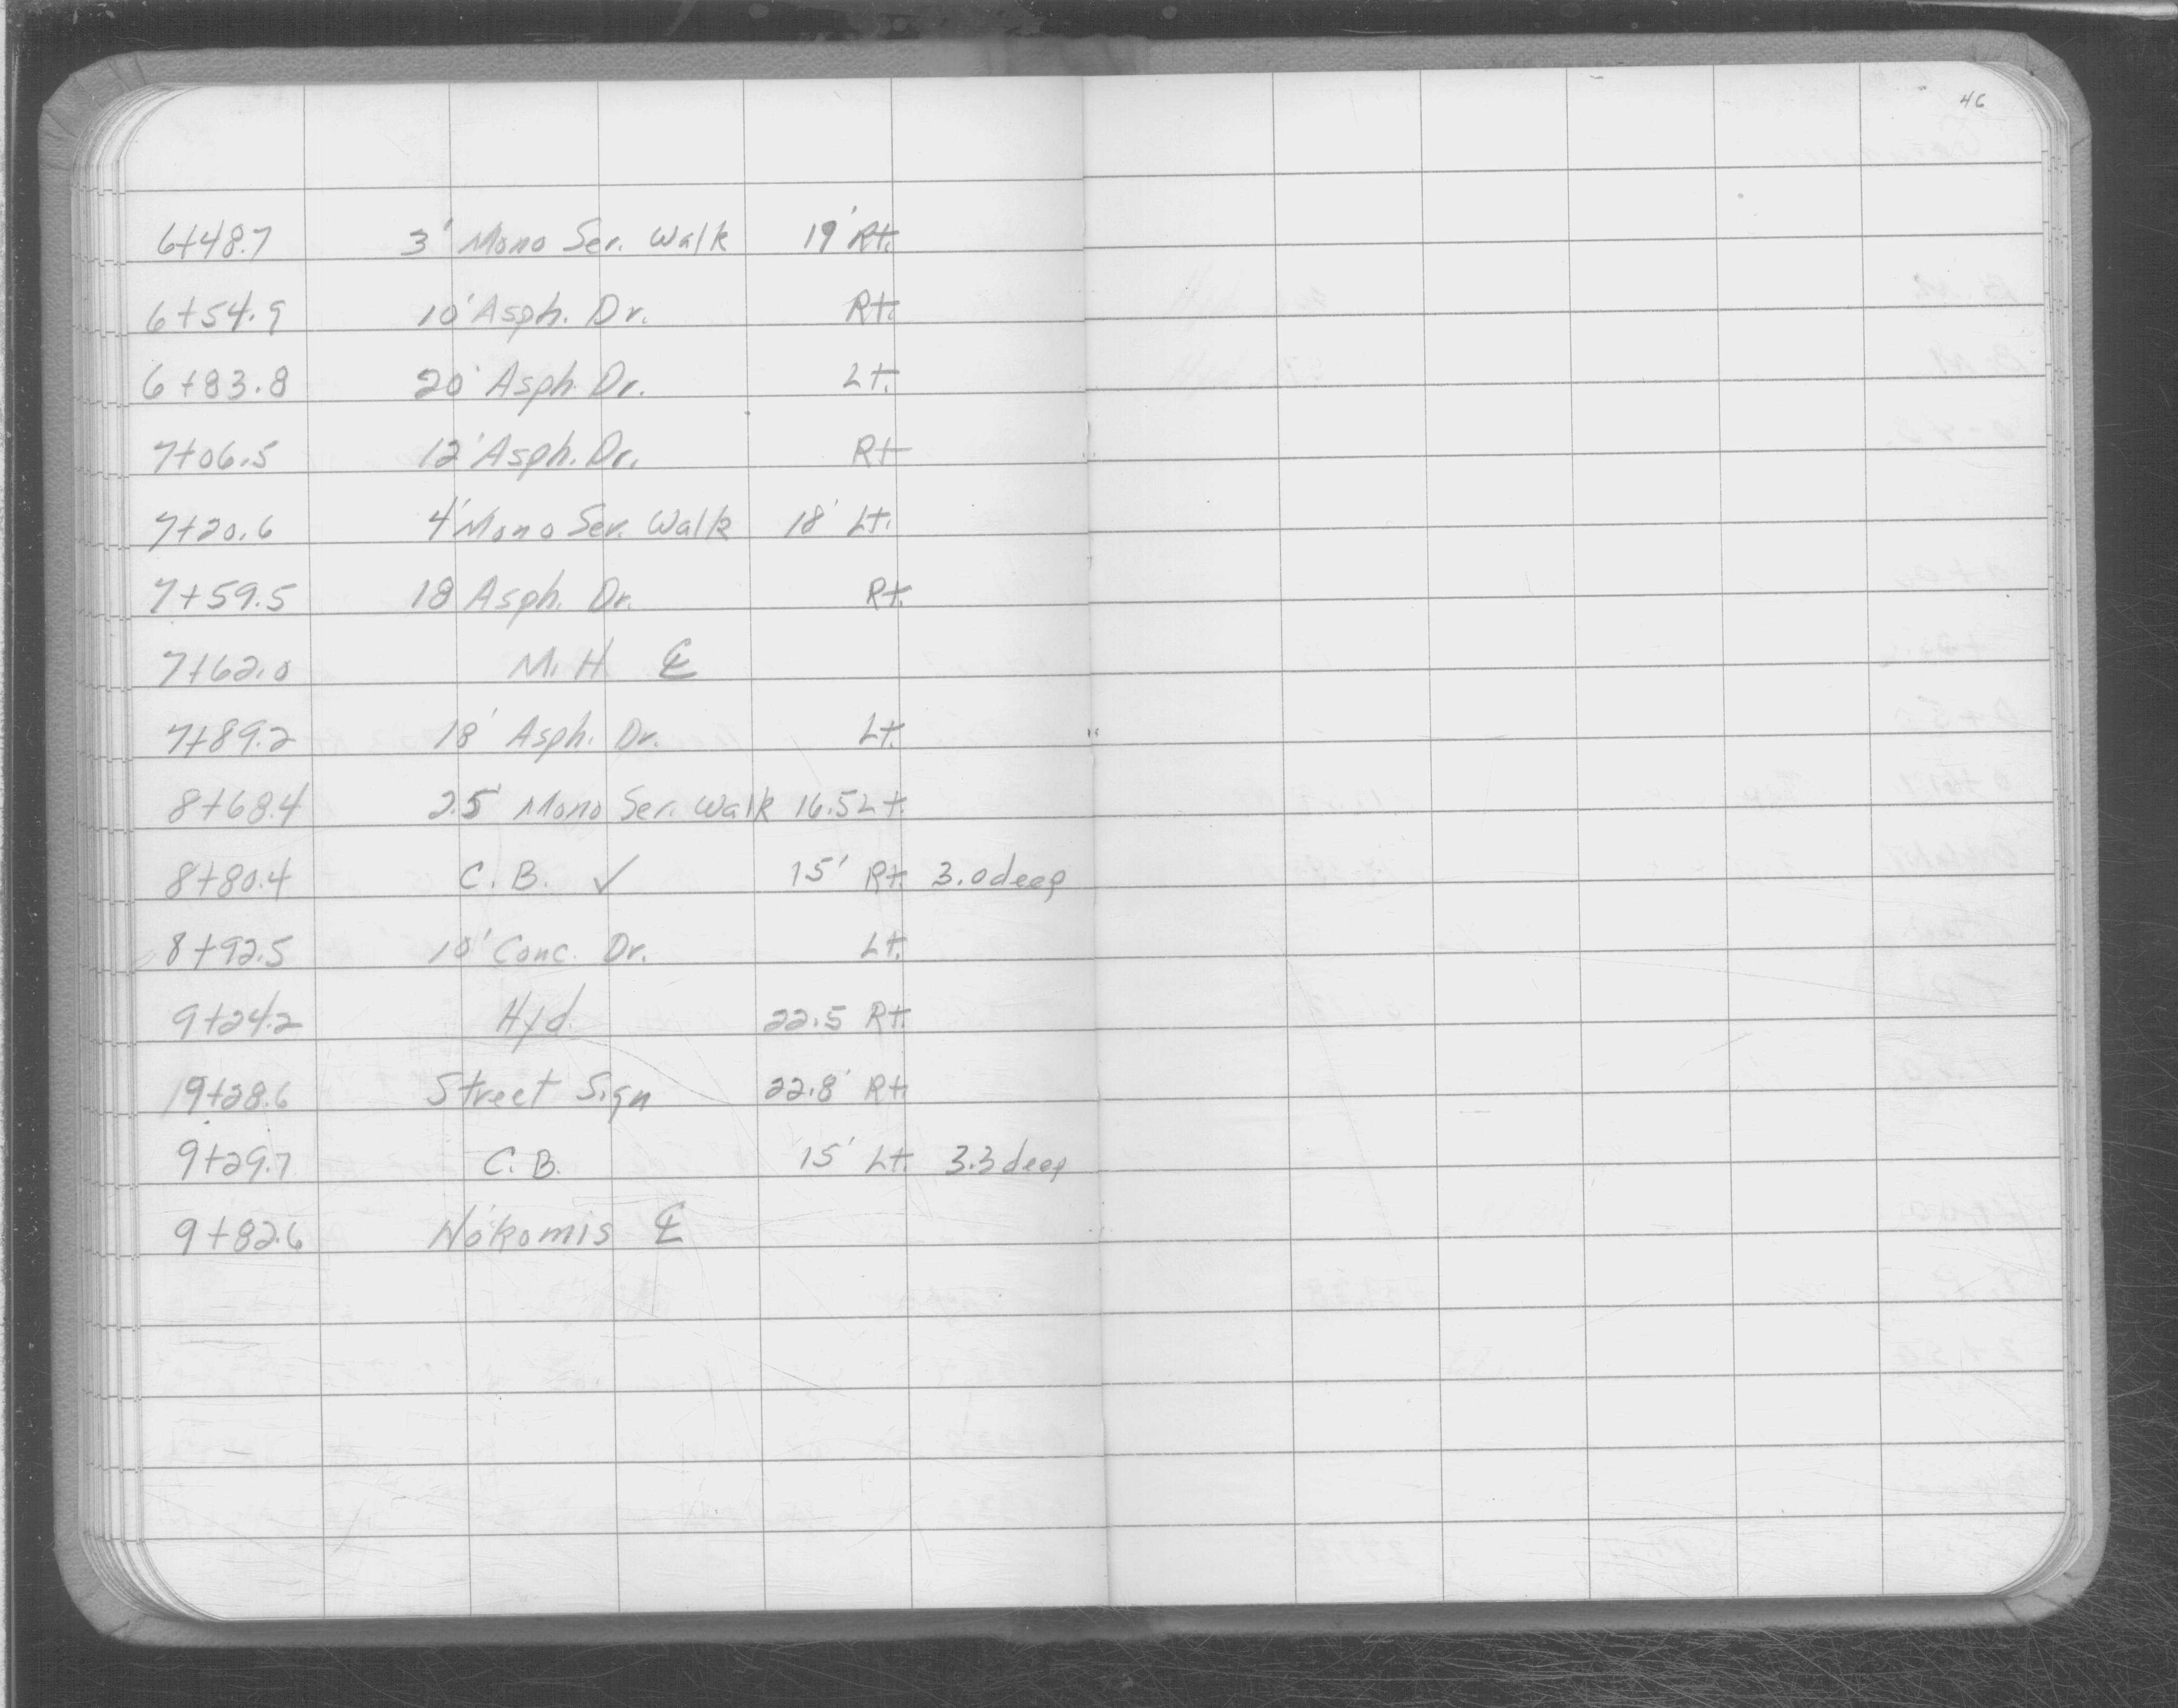 46
6+48.7 3' Mono Ser. Walk 19' Rt.
6+54.9 10' Asph. Dr. Rt.
6+83.8 20' Asph. Dr. Lt.
7+06.5 12' Asph. Dr. Rt
7+20.6 4' Mono Ser. Walk 18' Lt.
7+59.5 18 Asph. Dr. Rt.
7+62.0 M.H. ℄
7+89.2 18' Asph. Dr. Lt.
8+68.4 2.5' Mono Ser. Walk 16.5 Lt.
8+80.4 C.B. ✓ 15' Rt. 3.0 deep
8+92.5 10' Conc. Dr. Lt.
9+24.2 Hyd. 22.5 Rt.
19+28.6 Street Sign 22.8' Rt.
9+29.7 C.B. 15' Lt. 3.3 deep
9+82.6 Nokomis ℄